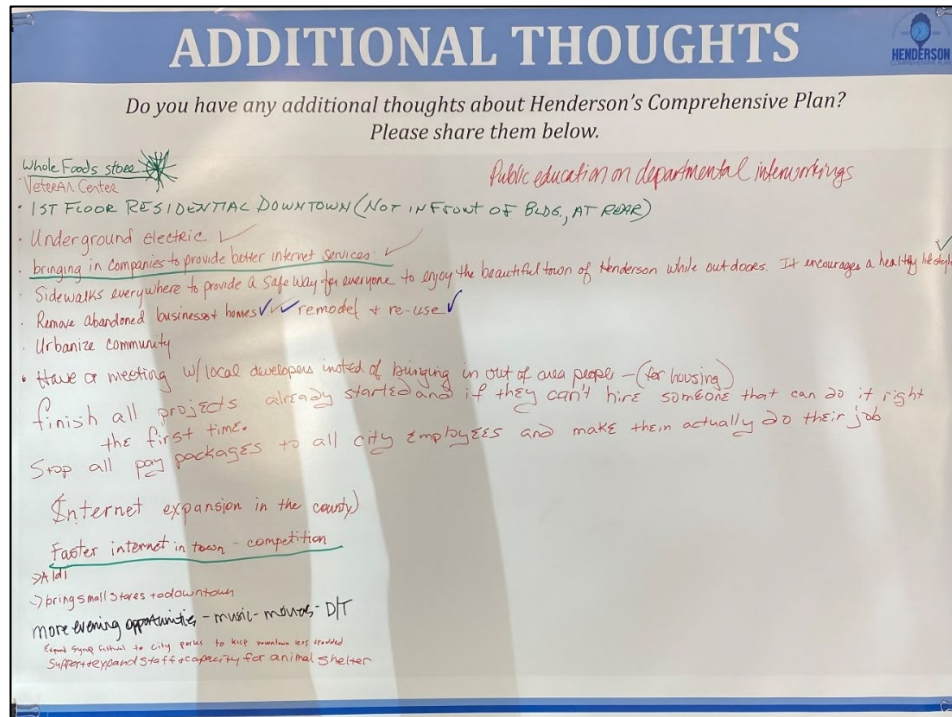 ADDITIONAL THOUGHTS
HENDERSON
COMPREHENSIVE PLAN
Do you have any additional thoughts about Henderson's Comprehensive Plan?
Please share them below.
Whole Foods store
Public education on departmental interworkings
Veteran Center
• 1ST FLOOR RESIDENTIAL DOWNTOWN (NOT IN FRONT OF BLDG, AT REAR)
• Underground electric ✓
• bringing in companies to provide better internet services. ✓
• Sidewalks everywhere to provide a safe way for everyone to enjoy the beautiful town of Henderson while outdoors. It encourages a healthy lifestyle ✓
• Remove abandoned business + homes ✓✓✓ remodel + re-use ✓
• Urbanize community
• Have a meeting w/ local developers insted of bringing in out of area people - (for housing)
finish all projects already started and if they can't hire someone that can do it right
the first time.
Stop all pay packages to all city Employees and make them actually do their job
(Internet expansion in the county)
Faster internet in town - competition
→ Aldi
→ bring small stores to downtown
more evening opportunities - music - movies - D/T
Expand festival to city parks to keep downtown less crowded
Support + expand staff + capacity for animal shelter